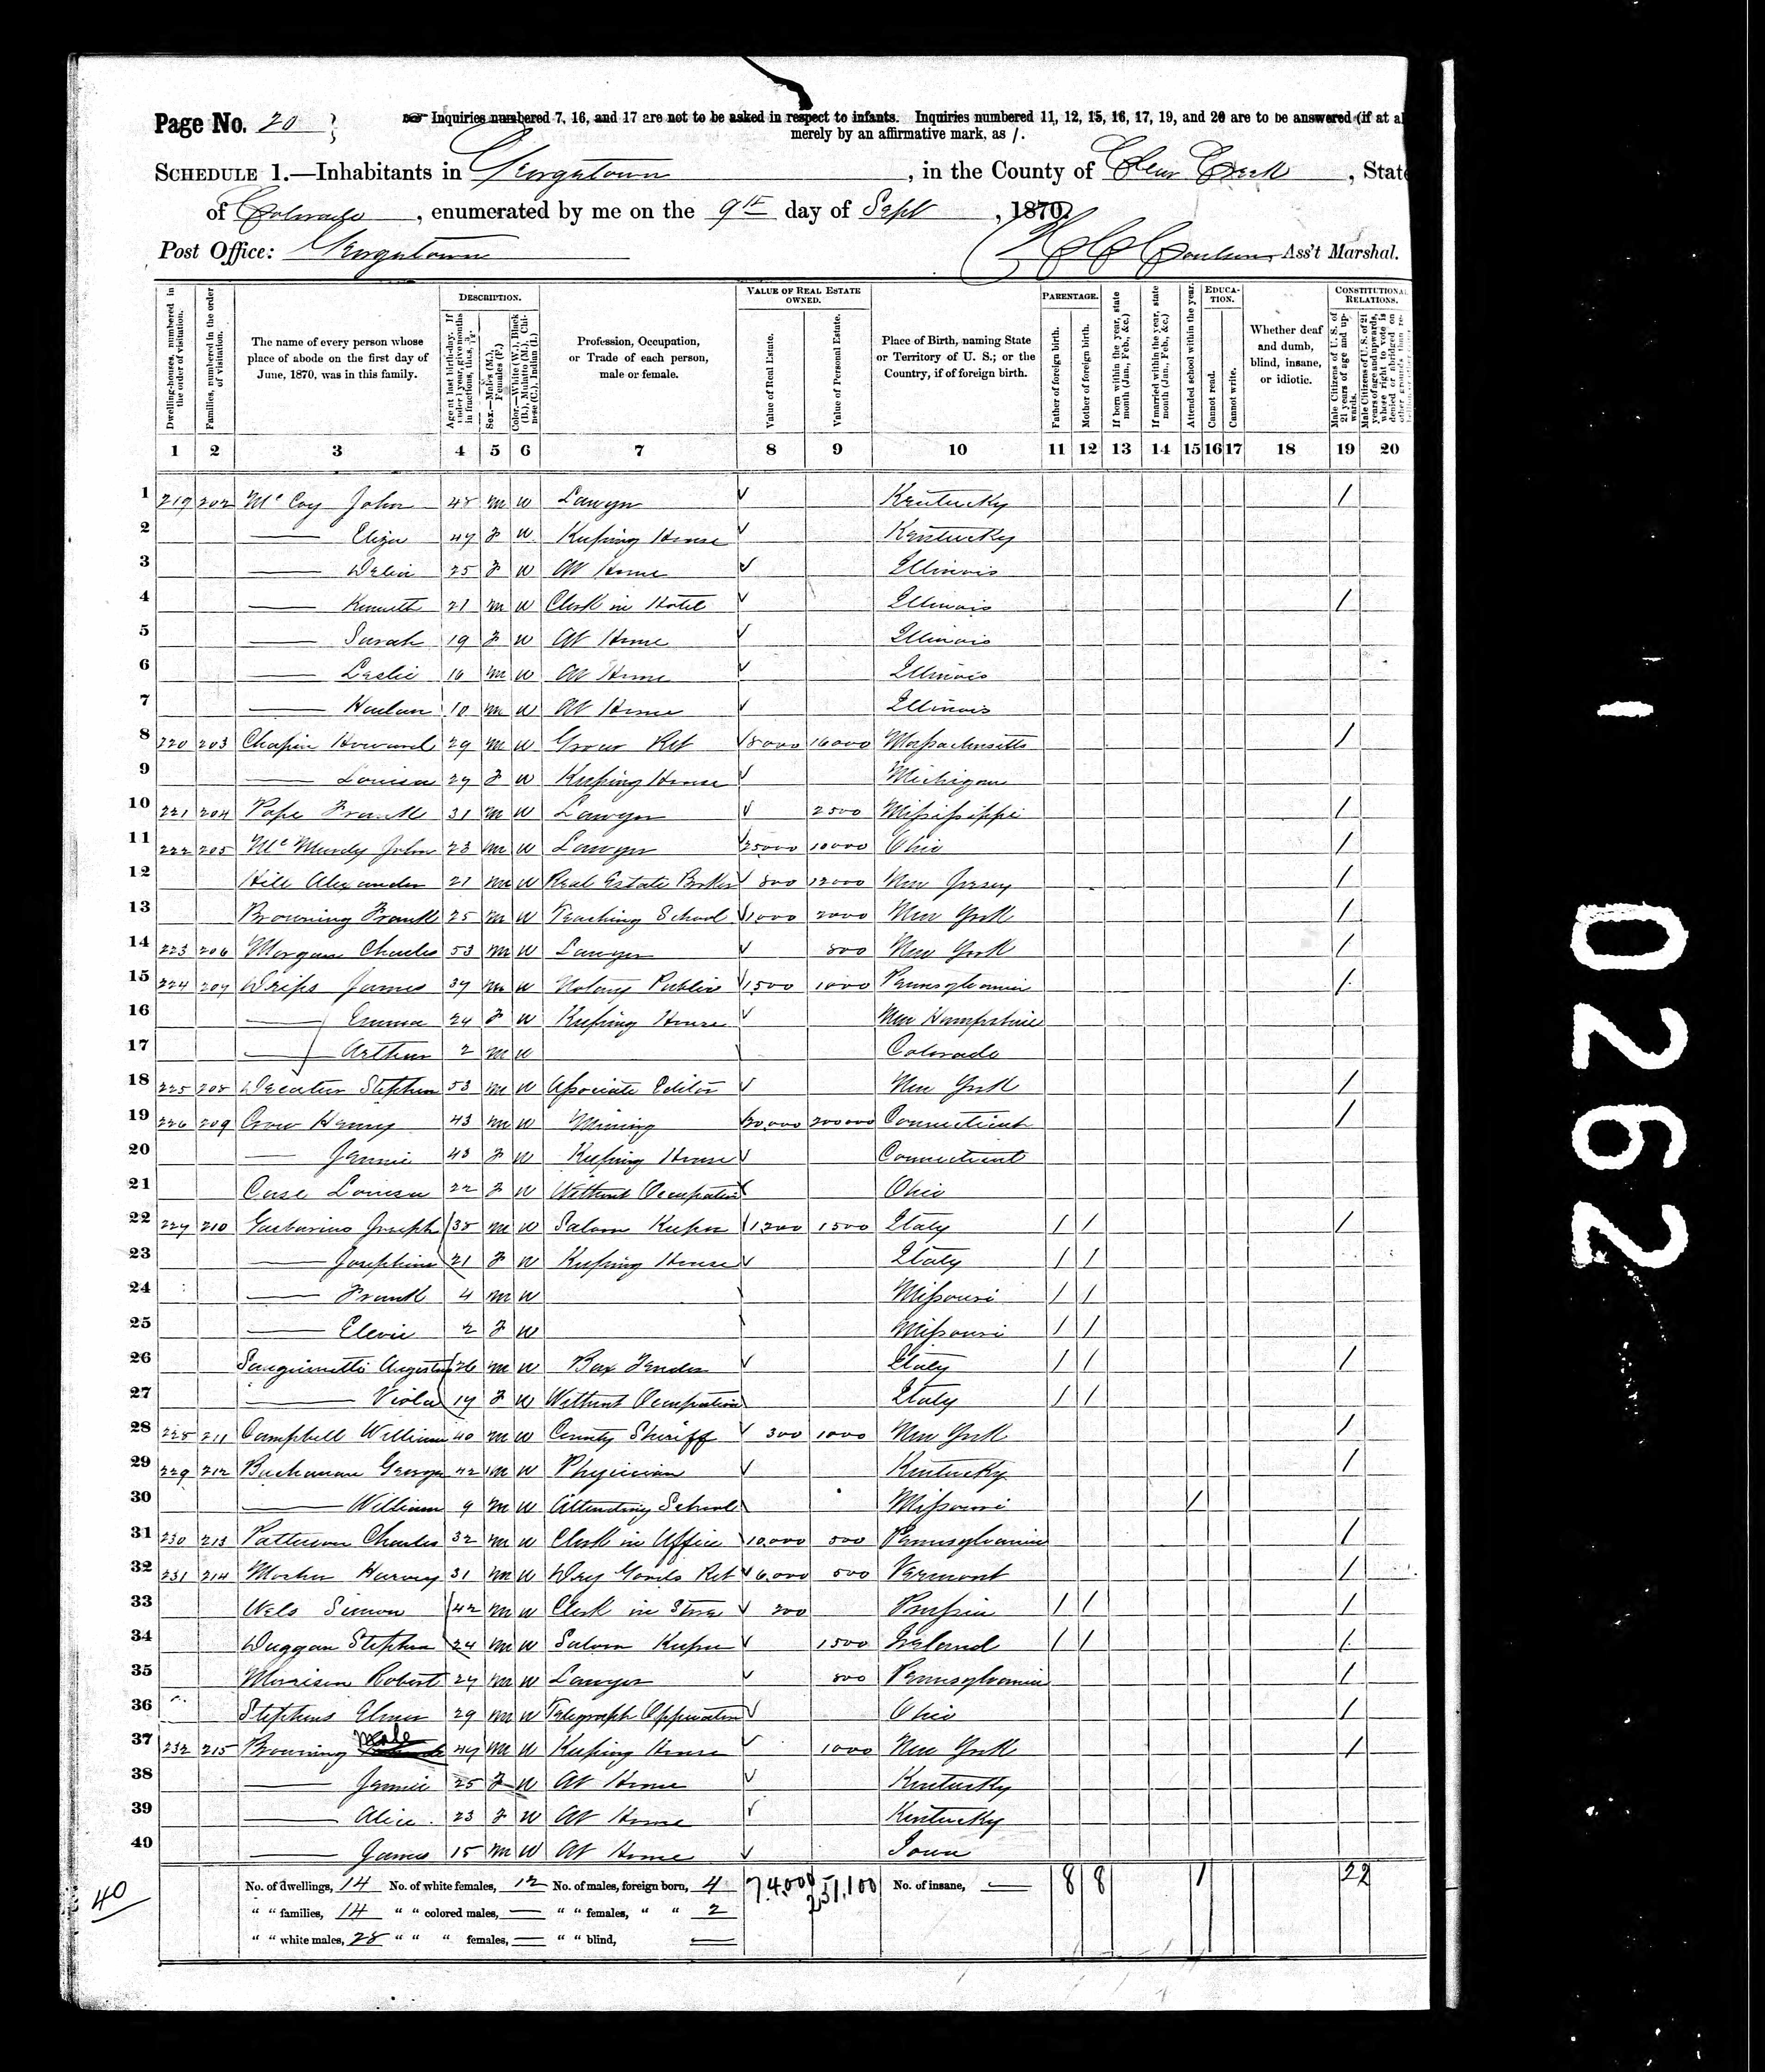 Page No. 20
Inquiries numbered 7, 16, and 17 are not to be asked in respect to infants. Inquiries numbered 11, 12, 15, 16, 17, 19, and 20 are to be answered (if at al
merely by an affirmative mark, as /.
SCHEDULE 1.—Inhabitants in Georgetown, in the County of Clear Creek, State
of Colorado, enumerated by me on the 9th day of Sept, 1870.
Post Office: Georgetown Ass't Marshal.
DESCRIPTION. VALUE OF REAL ESTATE OWNED. PARENTAGE. EDUCATION. CONSTITUTIONAL RELATIONS.
Dwelling-houses, numbered in the order of visitation.
Families, numbered in the order of visitation.
The name of every person whose place of abode on the first day of June, 1870, was in this family.
Age at last birth-day. If under 1 year, give months in fractions, thus, 3/12.
Sex.—Males (M.), Females (F.)
Color.—White (W.), Black (B.), Mulatto (M.), Chinese (C.), Indian (I.)
Profession, Occupation, or Trade of each person, male or female.
Value of Real Estate.
Value of Personal Estate.
Place of Birth, naming State or Territory of U. S.; or the Country, if of foreign birth.
Father of foreign birth.
Mother of foreign birth.
If born within the year, state month (Jan., Feb., &c.)
If married within the year, state month (Jan., Feb., &c.)
Attended school within the year.
Cannot read.
Cannot write.
Whether deaf and dumb, blind, insane, or idiotic.
Male Citizens of U. S. of 21 years of age and upwards.
Male Citizens of U. S. of 21 years of age and upwards, whose right to vote is denied or abridged on other grounds than re-
1 2 3 4 5 6 7 8 9 10 11 12 13 14 15 16 17 18 19 20
1 219 202 McCoy John 48 m w Lawyer Kentucky /
2 —— Eliza 47 F w Keeping House Kentucky
3 —— Delia 25 F w At Home Illinois
4 —— Kenneth 21 m w Clerk in Hotel Illinois /
5 —— Sarah 19 F w At Home Illinois
6 —— Leslie 16 m w At Home Illinois
7 —— Harlan 10 m w At Home Illinois
8 220 203 Chapin Howard 29 m w Grocer Ret 8000 16000 Massachusetts /
9 —— Louisa 27 F w Keeping House Michigan
10 221 204 Pope Frank 31 m w Lawyer 2500 Mississippi /
11 222 205 McMurdy John 23 m w Lawyer 25000 10000 Ohio /
12 Hill Alexander 21 m w Real Estate Broker 800 12000 New Jersey /
13 Browning Frank 25 m w Teaching School 1000 2000 New York /
14 223 206 Morgan Charles 53 m w Lawyer 800 New York /
15 224 207 James 37 m w Notary Public 1500 1000 Pennsylvania /
16 —— Emma 24 F w Keeping House New Hampshire
17 —— Arthur 2 m w Colorado
18 225 208 Decatur Stephen 53 m w Associate Editor New York /
19 226 209 Crow Henry 43 m w Mining 20,000 200000 Connecticut /
20 —— Jennie 43 F w Keeping House Connecticut
21 Case Louisa 22 F w Without Occupation Ohio
22 227 210 Garbarino Joseph 38 m w Saloon Keeper 1200 1500 Italy / / /
23 —— Josephine 21 F w Keeping House Italy / /
24 —— Frank 4 m w Missouri / /
25 —— 2 F w Missouri / /
26 Sanguinetti 26 m w Bar Tender Italy / / /
27 —— Viola 17 F w Without Occupation Italy / /
28 228 211 Campbell William 40 m w County Sheriff 300 1000 New York /
29 229 212 Buchanan George 42 m w Physician Kentucky /
30 —— William 9 m w Attending School Missouri /
31 230 213 Patterson Charles 32 m w Clerk in Office 10,000 500 Pennsylvania /
32 231 214 Mosher Harvey 31 m w Dry Goods Ret 6,000 500 Vermont /
33 Simon 42 m w Clerk in Store 200 Prussia / / /
34 Duggan Stephen 24 m w Saloon Keeper 1500 Ireland / / /
35 Morrison Robert 27 m w Lawyer 800 Pennsylvania /
36 Stephens Elmer 29 m w Telegraph Opperator Ohio /
37 232 215 Browning male 47 m w Keeping House 1000 New York /
38 —— Jennie 25 F w At Home Kentucky
39 —— Alice 23 F w At Home Kentucky
40 —— James 15 m w At Home Iowa
No. of dwellings, 14 No. of white females, 12 No. of males, foreign born, 4 74,000 251,100 No. of insane, — 8 8 1 22
" " families, 14 " " colored males, — " " females, " " 2
" " white males, 28 " " " females, — " " blind, —
40
0262